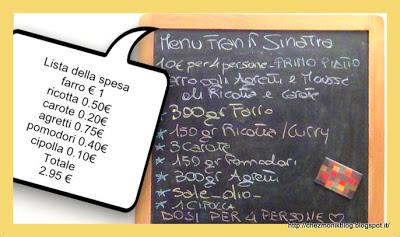 Lista della spesa
farro € 1
ricotta 0.50€
carote 0.20€
agretti 0.75€
pomodori 0.40€
cipolla 0.10€
Totale
2.95 €
Menu Fran & Sinatra
10€ per 4 persone - PRIMO PIATTO
Farro agli Agretti e Mousse
di Ricotta e carote
- 300gr Farro
- 150gr Ricotta/Curry
- 3 Carote
- 150gr Pomodori
- 300gr Agretti
- Sale - olio -
- 1 CIPOLLA
DOSI PER 4 PERSONE
http://chezmonikblog.blogspot.it/